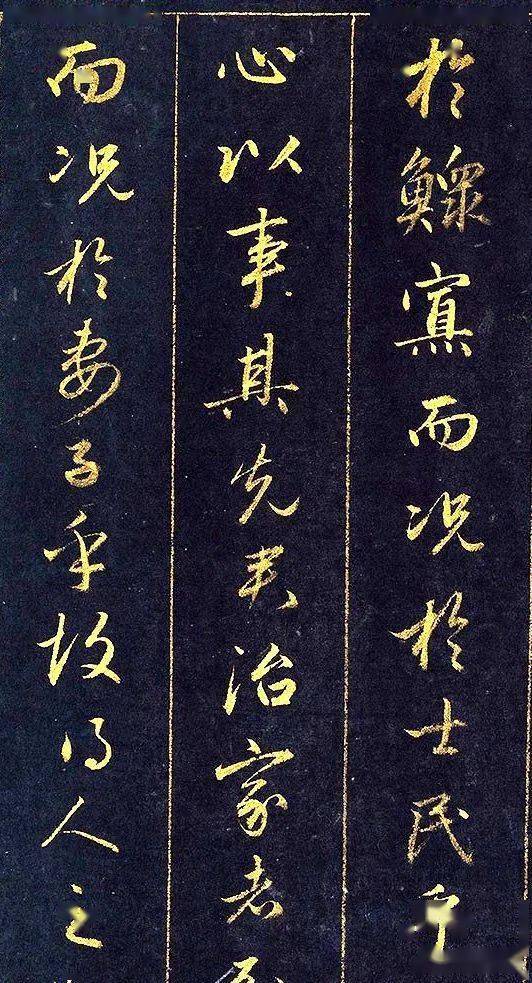 於鰥寡而况於士民乎
心以事其先君治家者
而况於妻子乎故得人之